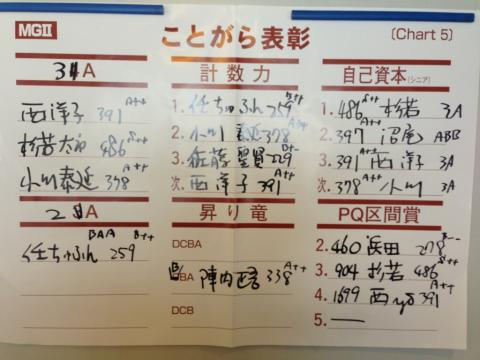 MGⅡ
ことがら表彰
〔Chart 5〕
3A
西洋子 391 A++
杉若太郎 486 S++
小川泰延 378 A++
2A
任ちゅふん 259 BAA B++
計数力
1. 任ちゅふん 259 B++
2. 小川泰延 378 A++
3. 佐藤 229 B+
次. 西洋子 391 A++
昇り竜
DCBA
CBA 陣内 338 A++
DCB
自己資本(シニア)
1. 486 S++ 杉若 3A
2. 397 A++ 沼尾 ABB
3. 391 A++ 西洋子 3A
次. 378 A++ 小川 3A
PQ区間賞
2. 460 浜田 278 B--
3. 904 杉若 486 S++
4. 1699 西 391 A++
5. ―